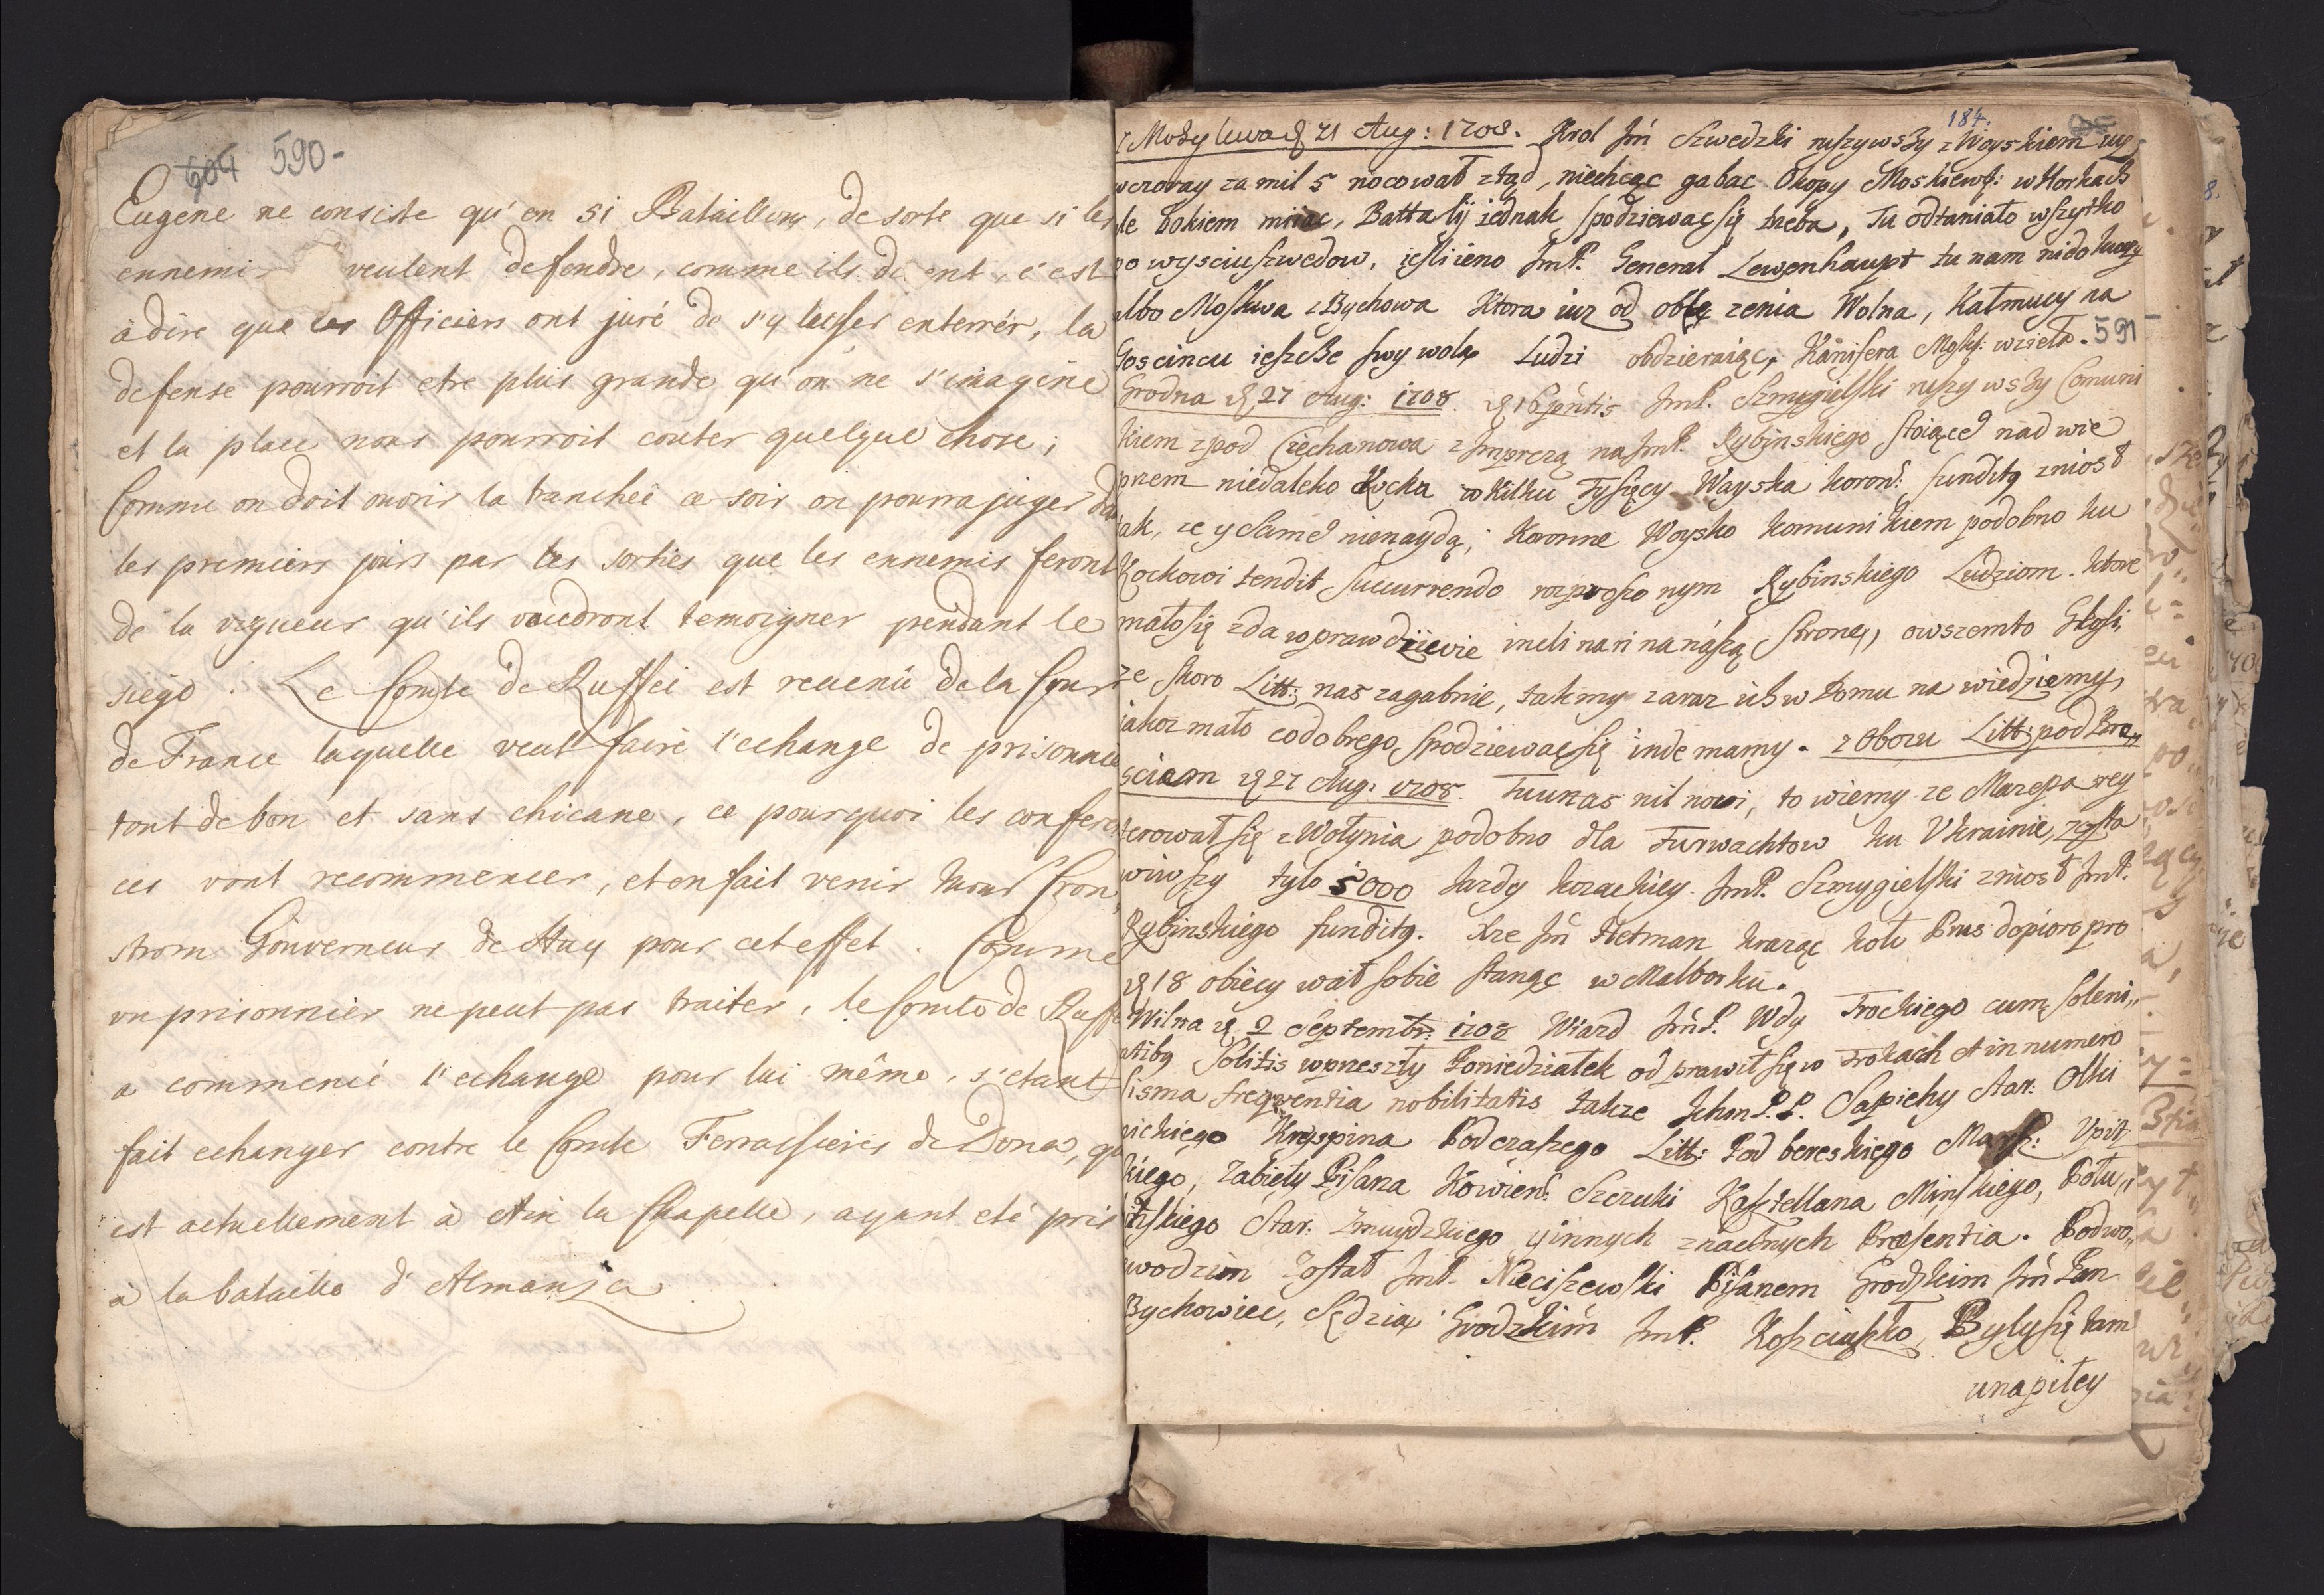 604 590-
Eugene ne consiste qu'en 51 Bataillons, de sorte que si les
ennemis veulent defendre, comme ils di ent, c'est
à dire que les Officiers ont juré de s'y laisser enterrér, la
defense pourroit etre plus grande qu'on ne s'imagine
et la place nous pourroit couter quelque chose;
Comme on doit ouvrir la tranchée ce soir on pourra juger dans
les premiers jours par les sorties que les ennemis feront
de la vigueur qu'ils voudront temoigner pendant le
siege. Le Comte de Ruffei est revenû de la Cour
de France laquelle veut faire l'echange de prisonnie
tout de bon et sans chicane, ce pourquoi les conferen
ces vont recommencer, et on fait venir Mons Cron,
strom Gouverneur de Huy pour cet effet. Comme
un prisonnier ne peut pas traiter, le Comte de Ruffe
a commencé l'echange pour lui même, s'etant
fait echanger contre le Comte Ferrassieres de Dona, qu
est actuellement à Aix la Chapelle, ayant eté pris
à la bataille d'Almanza
184.
z Mohylewa d 21 Aug: 1708. Krol Jm Szwedzki ruszywszy z Woyskiem wy
wczoray za mil 5 nocował ztąd, niechcąc gabac Okopy Moskiews: w Horkach
le bokiem miiac, Battalij iednak spodziewac się trzeba, Tu odtaniało wszytko
po wysciu szwedow, iesli ieno ImP. Generał Lewenhaupt tu nam nidokuczy
albo Moskwa z Bychowa Ktora iuz od oblęzenia Wolna, Kałmucy na
Goscincu ieszcze swywolą Ludzi obdzieraiąc, Kanifera Mosk: wzieto. 591
Grodna d 27 Aug: 1708. d 16 pentis ImP. Szmygielski ruszywszy Comuni
kiem zpod Ciechanowa z Imprezą na ImP. Rybinskiego stoiące nad wie
przem niedaleko Kocka w Kilku Tysięcy Wayska koron: funditq zniosł
iak, ze y same nienaydą, Koronne Woysko komunikiem podobno ku
Kockowi tendit succurrendo rozproszonym Rybinskiego Ludziom. ktore
mało się zda wprawdziewie inclinari na nászą stronę, owszem to Głosi,
ze skoro Litt: nas zagabnie, takmy zaraz ich w Domu nawiedziemy,
iakoz mało co dobrego spodziewac się inde mamy. z Obozu Litt: pod Brze,,
sciem d 27 Aug: 1708. Tu unas nil novi, to wiemy ze Mazepa rey
terował się z Wołynia podobno dla Furwachtow ku Vkrainie, zosta
wiwszy tylo 5000 hordy kozackiey. ImP. Szmygielski zniosł ImP.
Rybinskiego funditq. Xze Jm Hetman kraząc koło Prus dopioro pro
d 18 obiecywał sobie stanąc w Malborku.
Wilna d 2 Septembr: 1708 Wiazd JmP. Wdy Trockiego cum soleni,,
atibq solitis w przeszły Poniedziałek odprawił się w Trokach et in numero
sisma freqwentia nobilitatis takze Ichm P.P. Sapiehy Star: Olki
nickiego Kryspina Podczaszego Litt: Podbereskiego Marsz: Vpit
kiego, Zabieły Pisarza Kowień: Szczuki Kasztellana Minskiego, Połu,,
inskiego Star: Zmuydzkiego y innych znacznych Præsentia. Podwo,,
iewodzim został ImP. Nieciszewski Pisarzem Grodzkim Jm Pan
Bychowiec, Sędzią Grodzkim ImP. Koszciuszko, Byly się tam
unapiłey